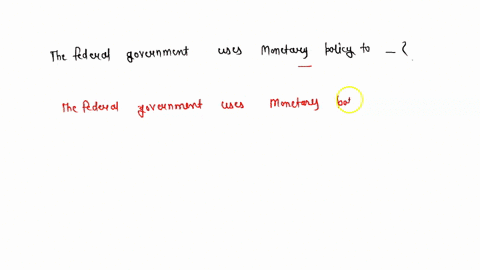 The federal government uses Monetary policy to _ ?
The federal government uses Monetary po